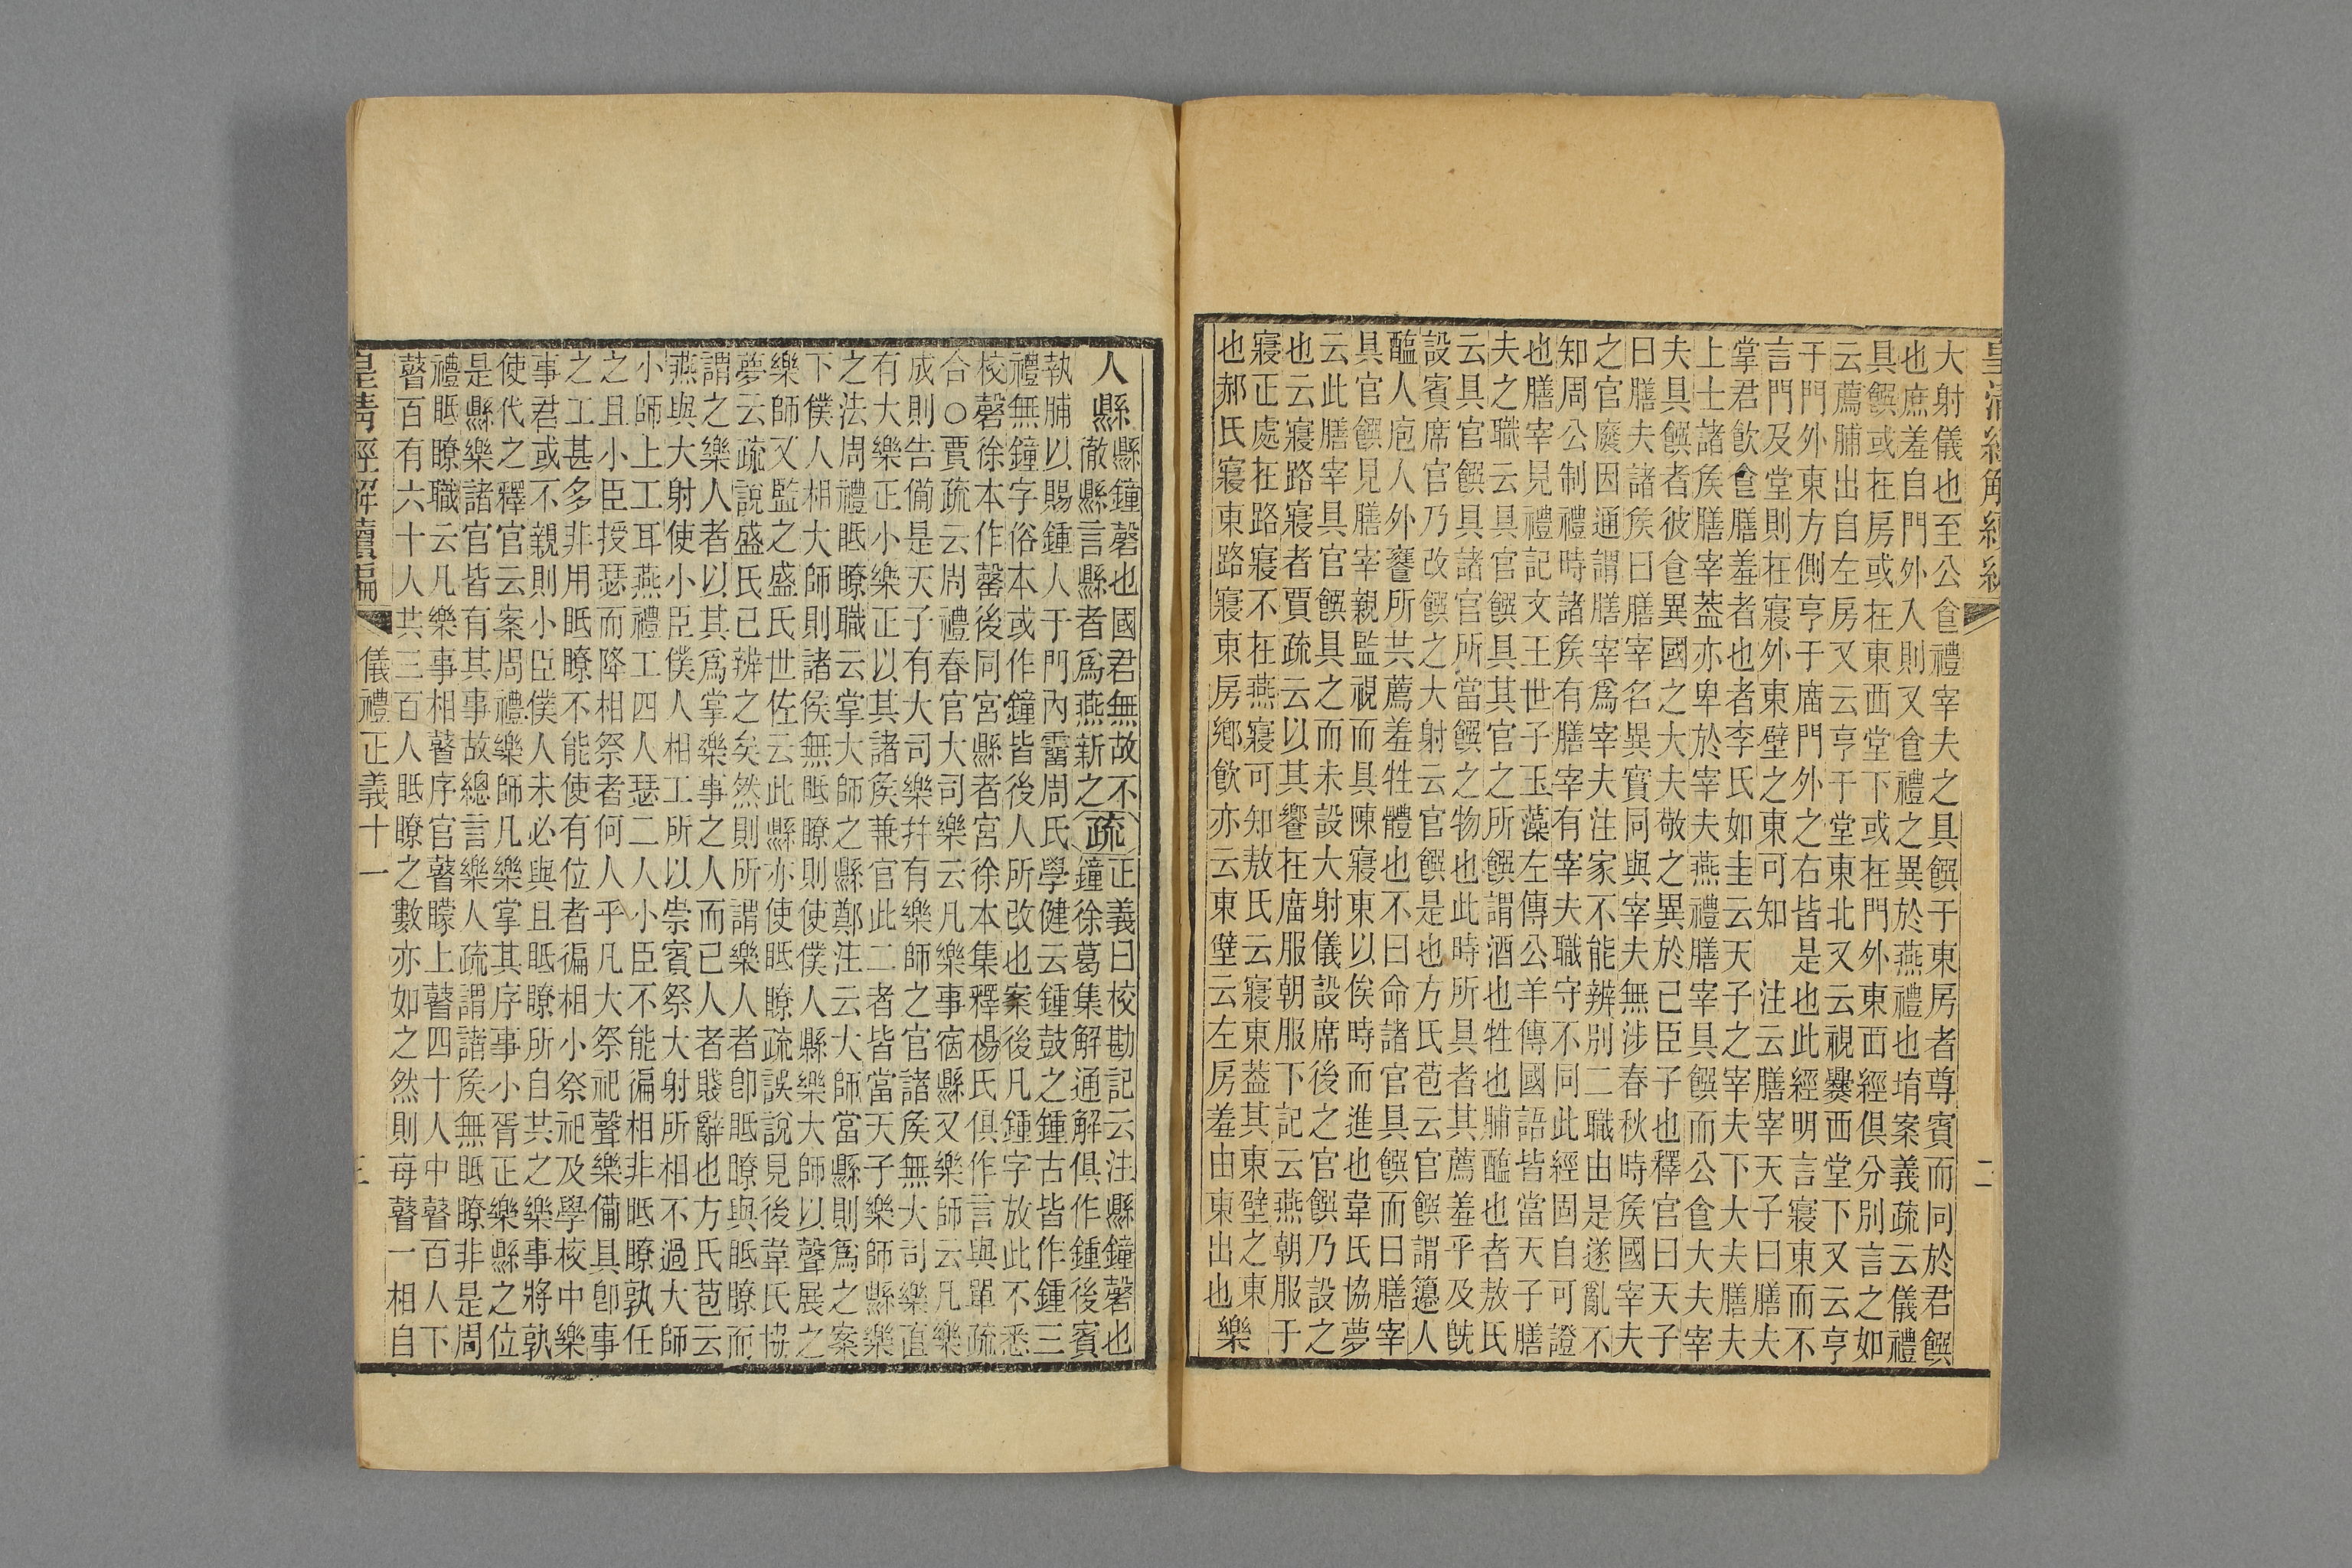 皇清經解續編 二
大射儀也至公食禮宰夫之具饌于東房者尊賓而同於君饌
也庶羞自門外入則又食禮之異於燕禮也堉案義疏云儀禮
具饌或在房或在東西堂下或在門外東面經俱分別言之如
云薦脯出自左房又云亨于堂東北又云視爨西堂下又云亨
于門外東方側亨于廟門外之右皆是也此經明言寢東而不
言門及堂則在寢外東壁之東可知　注云膳宰天子曰膳夫
掌君飲食膳羞者也者李氏如圭云天子之宰夫下大夫膳夫
上士諸侯膳宰葢亦卑於宰夫燕禮膳宰具饌而公食大夫宰
夫具饌者彼食異國之大夫敬之異於已臣子也釋官曰天子
曰膳夫諸侯曰膳宰名異實同與宰夫無涉春秋時侯國宰夫
之官廢因通謂膳宰爲宰夫注家不能辨別二職由是遂亂不
知周公制禮時諸侯有膳宰有宰夫職守不同此經固自可證
也膳宰見禮記文王世子玉藻左傳公羊傳國語皆當天子膳
夫之職云具官饌具其官之所饌謂酒也牲也脯醢也者敖氏
云具官饌具諸官所當饌之物也此時所具者其薦羞乎及旣
設賓席官乃改饌之大射云官饌是也方氏苞云官饌謂籩人
醢人庖人外饔所共薦羞牲體也不曰命諸官具饌而曰膳宰
具官饌見膳宰親監視而具陳寢東以俟時而進也韋氏協夢
云此膳宰具官饌具之而未設大射儀設席後之官饌乃設之
也云寢路寢者賈疏云以其饗在廟服朝服下記云燕朝服于
寢正處在路寢不在燕寢可知敖氏云寢東葢其東壁之東
也郝氏寢東路寢東房鄉飲亦云東壁云左房羞由東出也
樂
人縣
縣鐘磬也國君無故不
徹縣言縣者爲燕新之
疏
正義曰校勘記云注縣鐘磬也
鐘徐葛集解通解俱作鍾後賓
執脯以賜鍾人于門內霤周氏學健云鍾鼓之鍾古皆作鍾三
禮無鐘字俗本或作鐘皆後人所改也案後凡鍾字放此不悉
校磬徐本作罄後同宮縣者宮徐本集釋楊氏俱作言與單疏
合○賈疏云周禮春官大司樂云凡樂事宿縣又樂師云凡樂
成則告備是天子有大司樂幷有樂師之官諸侯無大司樂直
有大樂正小樂正以其諸侯兼官此二者皆當天子樂師縣樂
之法周禮眡瞭職云掌大師之縣鄭注云大師當縣則爲之案
下僕人相大師則諸侯無眡瞭則使僕人縣樂大師以聲展之
樂師又監之盛氏世佐云此縣亦使眡瞭疏誤說見後韋氏協
夢云疏說盛氏已辨之矣然則所謂樂人者卽眡瞭與眡瞭而
謂之樂人者以其爲掌樂事之人而已人者賤辭也方氏苞云
燕與大射使小臣僕人相工所以崇賓祭大射所相不過大師
小師上工耳燕禮工四人瑟二人小臣不能徧相非眡瞭孰任
之且小臣授瑟而降相祭者何人乎凡大祭祀聲樂備具卽事
之工甚多非用眡瞭不能使有位者徧相小祭祀及學校中樂
事君或不親則小臣僕人未必與且眡瞭所自共之樂事將孰
使代之釋官云案周禮樂師凡樂掌其序事小胥正樂縣之位
是縣樂諸官皆有其事故總言樂人疏謂諸侯無眡瞭非是周
禮眡瞭職云凡樂事相瞽序官瞽矇上瞽四十人中瞽百人下
瞽百有六十人共三百人眡瞭之數亦如之然則每瞽一相自
皇清經解續編 儀禮正義十一 三